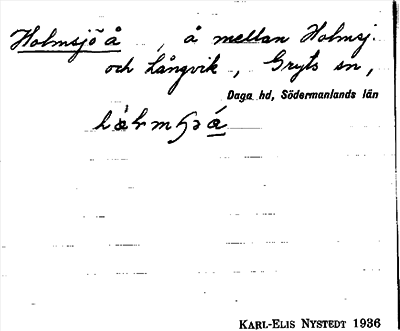 Holmsjö å, å mellan Holmsj.
och Långvik, Gryts sn,
Daga hd, Södermanlands län
KARL-ELIS NYSTEDT 1936